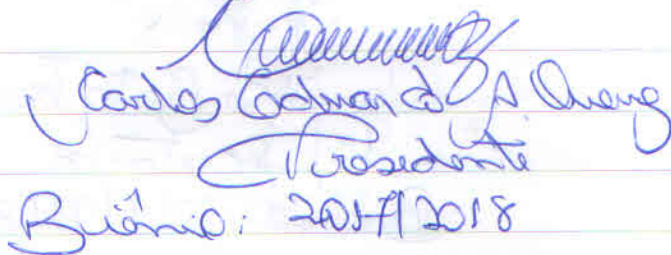 Carlos Eduardo A.
Presidente
Biênio: 2017/2018